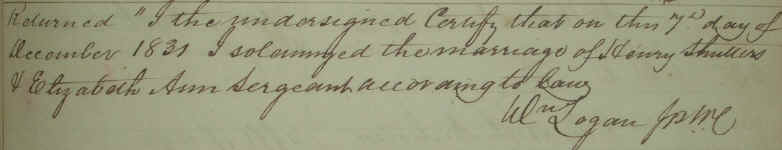 Returned "I the undersigned Certify that on this 7th day of
December 1831 I solemnized the marriage of Henry Shutters
& Elizabeth Ann Sergeant according to Law
Wm Logan JPMC